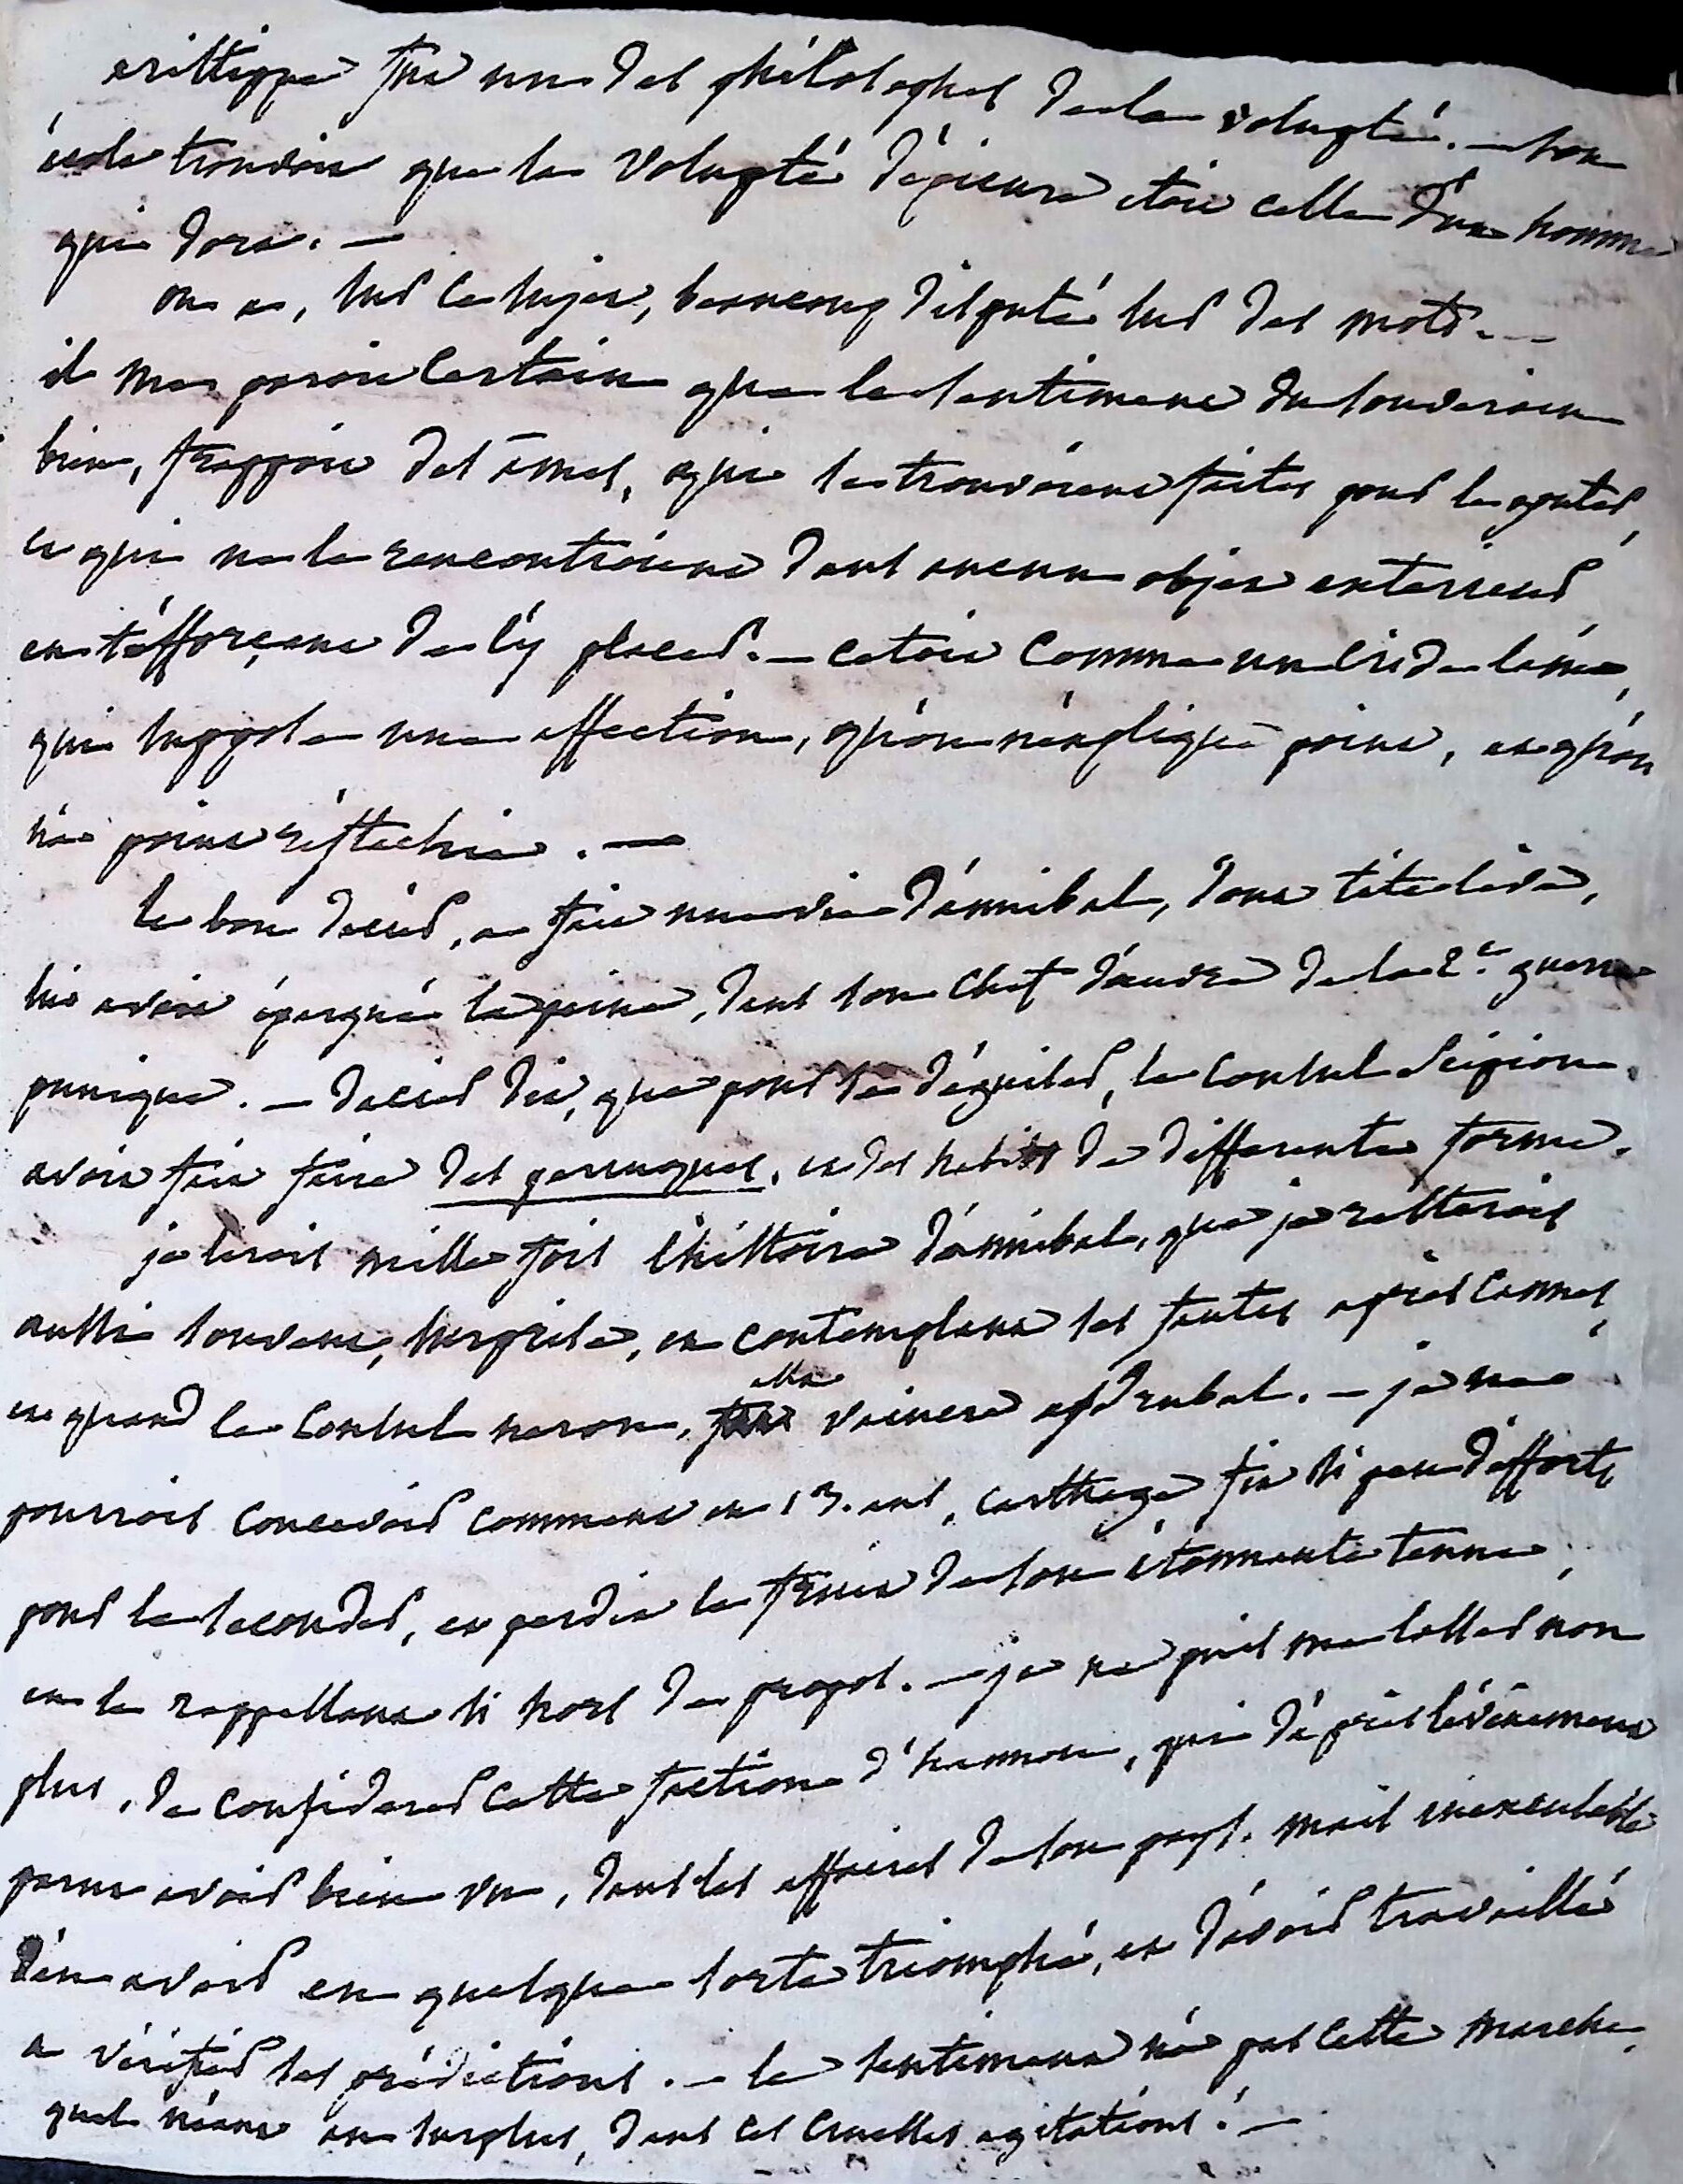 aristippe fut un des philosophes de la volupté. — son
école trouvoit que la volupté d'épicure etoit celle d'un homme
qui dort. —
on a, sur ce sujet, beaucoup disputé sur des mots. —
il me paroit certain que le sentiment du souverain
bien, frappoit des âmes, qui se trouvoient faites pour le gouter,
et qui ne le rencontroient dans aucun objet exterieur
en s'éfforçant de l'y placer. — cetoit comme un cri de lame,
qui suppose une affection, qu'on n'éxplique point, et qu'on
n'a point réflechie. —
le bon dacier, a fait une vie d'annibal, dont titelive,
lui avoit épargné la peine, dans son chef d'œuvre de la 2.e guerre
punique. — dacier dit, que pour se déguiser, le consul scipion,
avoit fait faire des perruques, et des habits de differente forme.
je lirois mille fois l'histoire d'annibal, que je resterois
aussi souvent, surprise, en contemplant ses fautes après cannes,
et quand le consul neron, alla vaincre asdrubal. — je ne
pourrois concevoir comment en 13. ans, carthage, fit si peu d'efforts
pour le seconder, et perdit le fruit de son étonnante tenue,
en le rappellant si hors de propos. — je ne puis me lasser non
plus, de considerer cette faction d'hannon, qui d'après l'évènement
parut avoir bien vu, dans les affaires de son pays. mais inexcusable
d'en avoir en quelque sorte triomphé, et d'avoir travaillé
a vérifier ses prédictions. — le sentiment n'a pas cette marche,
quel néant au surplus, dans ces cruelles agitations! —